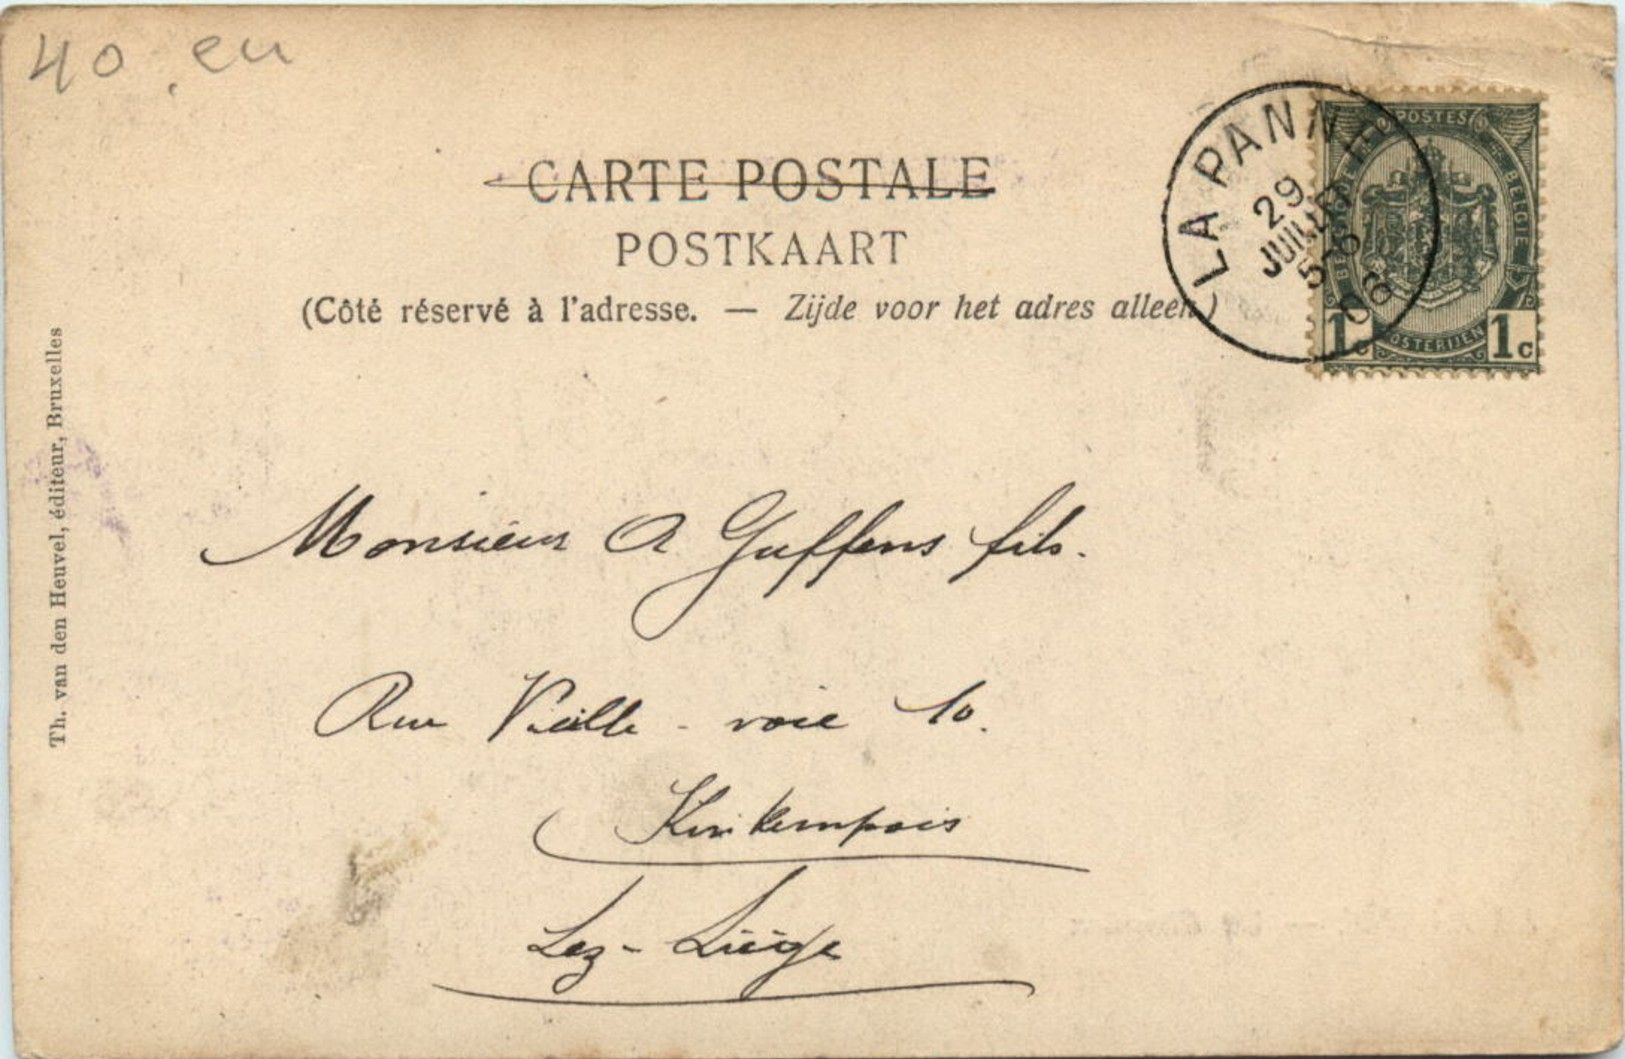 40 eu
CARTE POSTALE
POSTKAART
(Côté réservé à l'adresse. — Zijde voor het adres alleen)
LA PANNE
29
JUIL
5-6
06
POSTES
BELGIE
POSTERIJEN
1c 1c
Th. van den Heuvel, éditeur, Bruxelles
Monsieur A Guffens fils.
Rue Vieille-voie 10.
Kinkempois
Lez-Liège